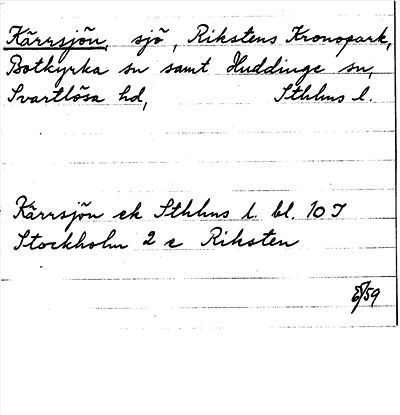 Kärrsjön, sjö, Rikstens Kronopark,
Botkyrka sn samt Huddinge sn,
Svartlösa hd, Sthlms l.
Kärrsjön ek Sthlms l. bl. 10 J
Stockholm 2 c Riksten